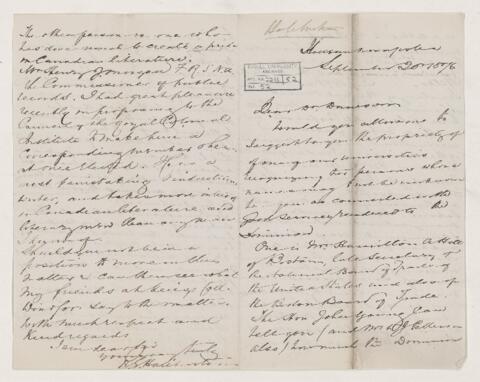 Haliburton
September 20 1876
McGILL UNIVERSITY ARCHIVES
ACC. NO. 2211/52
REF. 52
Dear Dr Dawson
Would you allow me to
suggest to you the propriety
of many universities
recognizing two persons whose
names may not be unknown
to you as connected with
good services rendered to the
Dominion
One is Mr. Hamilton A Hill
of Boston, late Secretary of
the National Board of Trade of
the United States and also of
the Boston Board of Trade.
The Hon John Young can
tell you (and Mr W J Patterson
also) how much the Dominion
The other person is one who
has done much to create a
in Canadian literature.
Mr Henry F.R.S.N.A.
the Commissioner of public
records. I had great pleasure
recently in proposing to the
Council of the Royal Colonial
Institute to make him a
corresponding member &
at once elected. He is a
most
writer, and takes more interest
in Canadian literature and
literary men than any man
I know of
Should you not be in a
position to move in this
matter I can then see what
my friends at
Dont for say to the matter.
With much respect and
kind regards
I am dear Sir
yours very truly
R G Haliburton